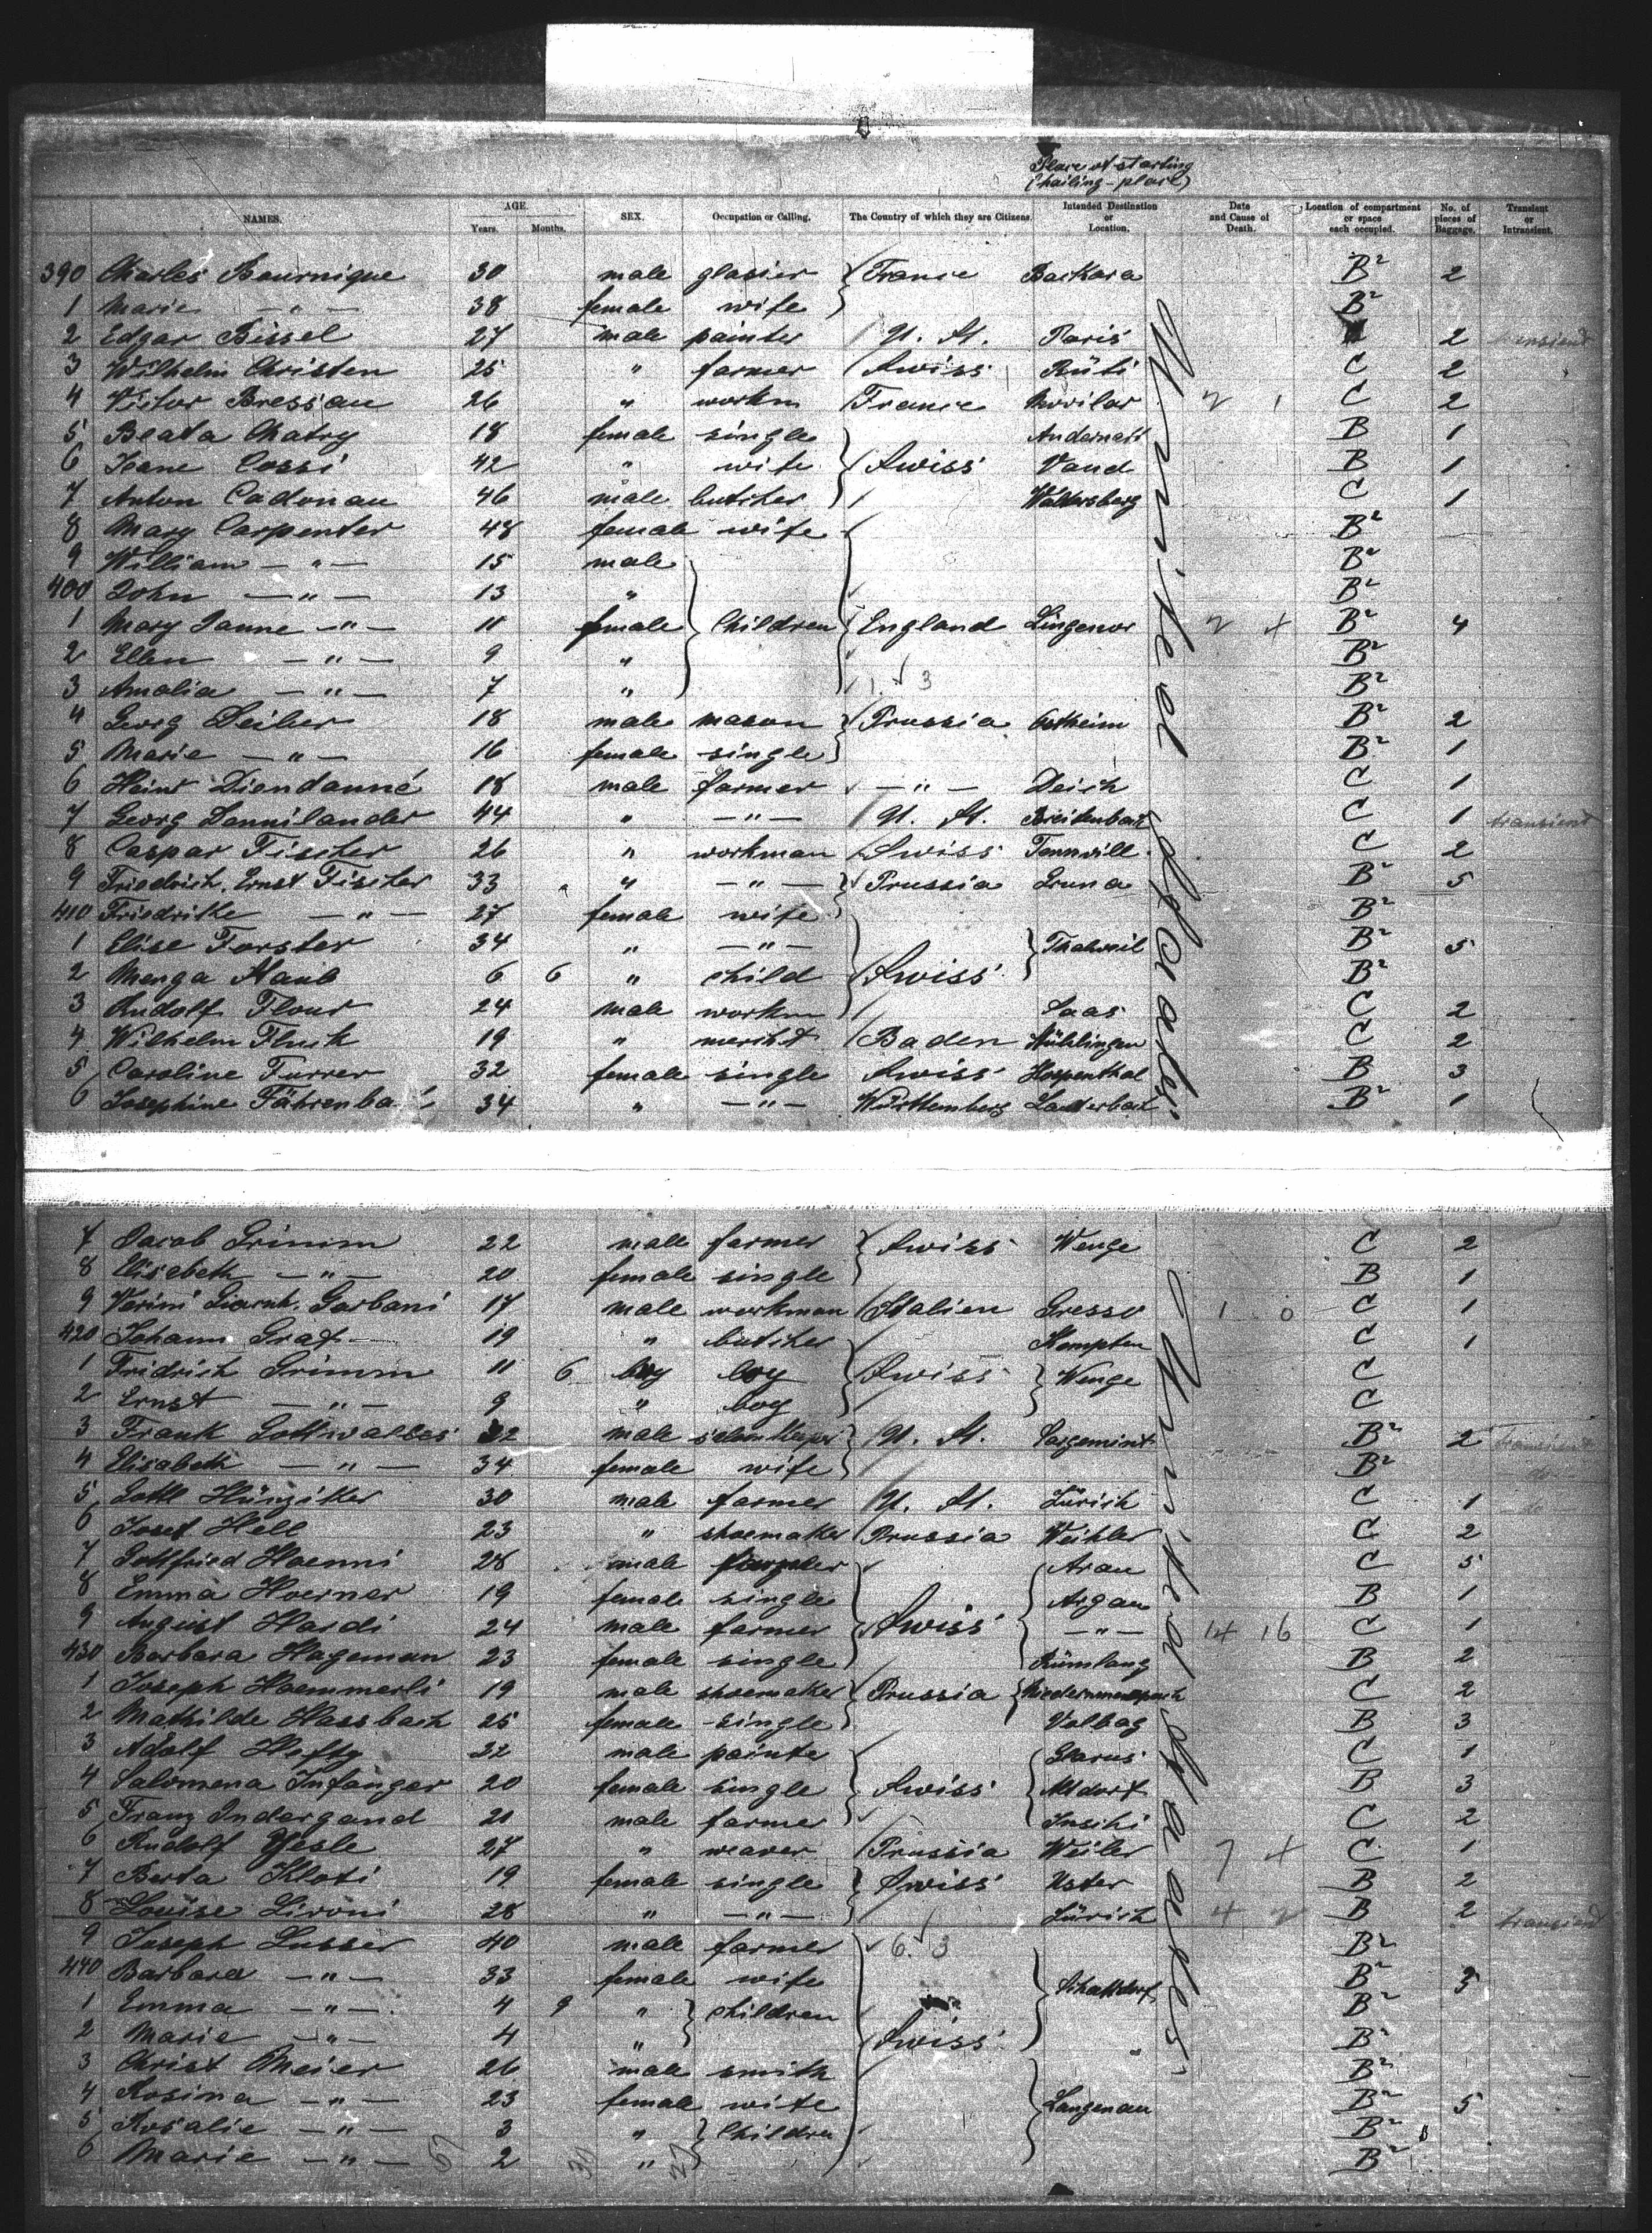 Place of starting
(hailing-place)
NAMES. AGE. Years. Months. SEX. Occupation or Calling. The Country of which they are Citizens. Intended Destination or Location. Date and Cause of Death. Location of compartment or space each occupied. No. of pieces of Baggage. Transient or Intransient.
390 Charles Bournique 30 male glasier France Backara B² 2
1 Marie — " — 38 female wife B²
2 Edgar Bissel 27 male painter U. St. Paris 2 transient
3 Wilhelm Christen 25 " farmer Swiss Rüti C 2
4 Victor Bressan 26 " workm France Movilar C 2
5 Beata Chatry 18 female single Andernatt B 1
6 Jeane Cossi 42 " wife Swiss Vaud B 1
7 Anton Cadonau 46 male butcher Waltersberg C 1
8 Mary Carpenter 48 female wife B²
9 William — " — 15 male B²
400 John — " — 13 " B²
1 Mary Janne — " — 11 female Children England Lingenor 2 4 B² 4
2 Ellen — " — 9 " B²
3 Amalia — " — 7 " B²
4 Georg Deiber 18 male mason Prussia Ostheim B² 2
5 Marie — " — 16 female single B² 1
6 Heinr Diendonné 18 male farmer — " — Deich C 1
7 Georg Dennilander 44 " — " — U. St. Breitenbach C 1 transient
8 Caspar Fischer 26 " workman Swiss Tennwill C 2
9 Friedrich Ernst Fischer 33 " — " — Prussia Gruna B² 5
410 Friedrike — " — 27 female wife B²
1 Elise Forster 34 " — " — Thalweil B² 5
2 Menga Staub 6 6 " child Swiss B²
3 Rudolf Flour 24 male workm Saas C 2
4 Wilhelm Fluck 19 " mercht Baden Mühlingen C 2
5 Caroline Furrer 32 female single Swiss Hospenthal B 3
6 Josephine 34 " — " — Württemberg Lauterbach B² 1
United States
7 Jacob Grimm 22 male farmer Swiss Wenge C 2
8 Elisabeth — " — 20 female single B 1
9 Garbani 17 male workman Italien Gresso 1 0 C 1
420 Johann Graf 19 " butcher Kempten C 1
1 Fridrich Grimm 11 6 boy boy Swiss Wenge C
2 Ernst — " — 9 " boy C
3 Frank Gottwalles 32 male U. St. Sargemint B² 2 transient
4 Elisabeth — " — 34 female wife B² do
5 Gottl Hünziker 30 male farmer U. St. Zürich C 1 do
6 Josef Hell 23 " shoemaker Prussia Weihler C 2
7 Gottfried Haenni 28 male Arau C 5
8 Emma Hoerner 19 female single Argau B 1
9 August Hardi 24 male farmer Swiss — " — 14 16 C 1
430 Barbara Hageman 23 female single Rümlang B 2
1 Joseph Haemmerli 19 male shoemaker Prussia C 2
2 Mathilde Hassbach 25 female single Volbag B 3
3 Adolf Hefty 22 male painte Glarus C 1
4 Salomena Infanger 20 female single Swiss Altdorf B 3
5 Franz Indergand 20 male farmer Insihi C 2
6 Rudolf Yesle 27 " weaver Prussia Weiler 7 4 C 1
7 Berta Kloti 19 female single Swiss Uster B 2
8 Louise Lironi 28 " — " — Zürich 4 2 B 2 transient
9 Joseph Lusser 40 male farmer B²
440 Barbara — " — 33 female wife Schattdorf B² 3
1 Emma — " — 4 9 " children B²
2 Marie — " — 4 " Swiss B²
3 Christ Meier 26 male smith B²
4 Rosina — " — 23 female wife Langenau B² 5
5 Rosalie — " — 3 " Children B²
6 Marie — " — 2 " B²
United States